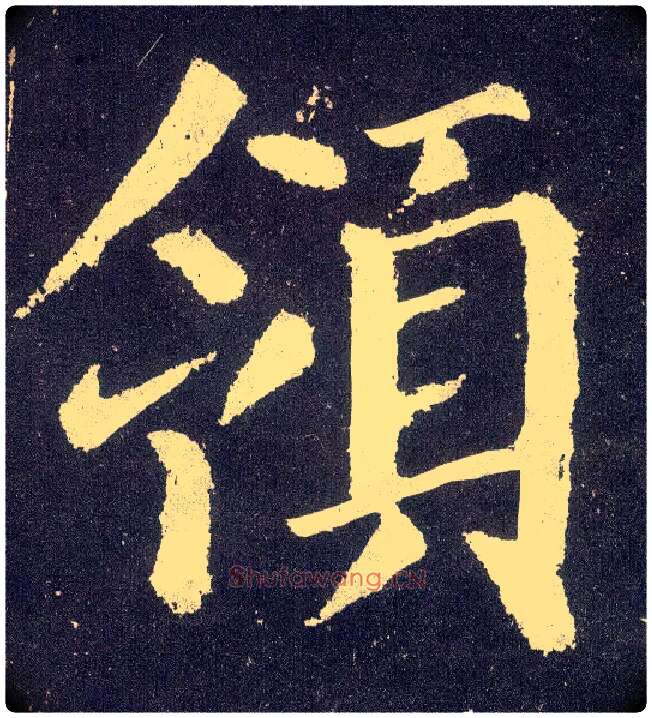 領
Shufawang.CN